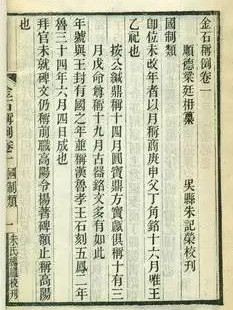 金石稱例卷一
順德梁廷枏纂 吳縣朱記榮校刊
國制類
卽位未改年者以月稱商庚申父丁角銘十六月唯王
乙祀也
按公緘鼎稱十四月圓寶鼎方寶甗俱稱十有三
月戊命尊稱十九月古器銘文多有如此
年號與王封有國之年並稱漢魯孝王石刻五鳳二年
魯三十四年六月四日成也
拜官未就碑文仍稱前職高陽令揚著碑額止稱高陽
也
金石稱例卷一 國制類 一 朱氏槐廬校刊